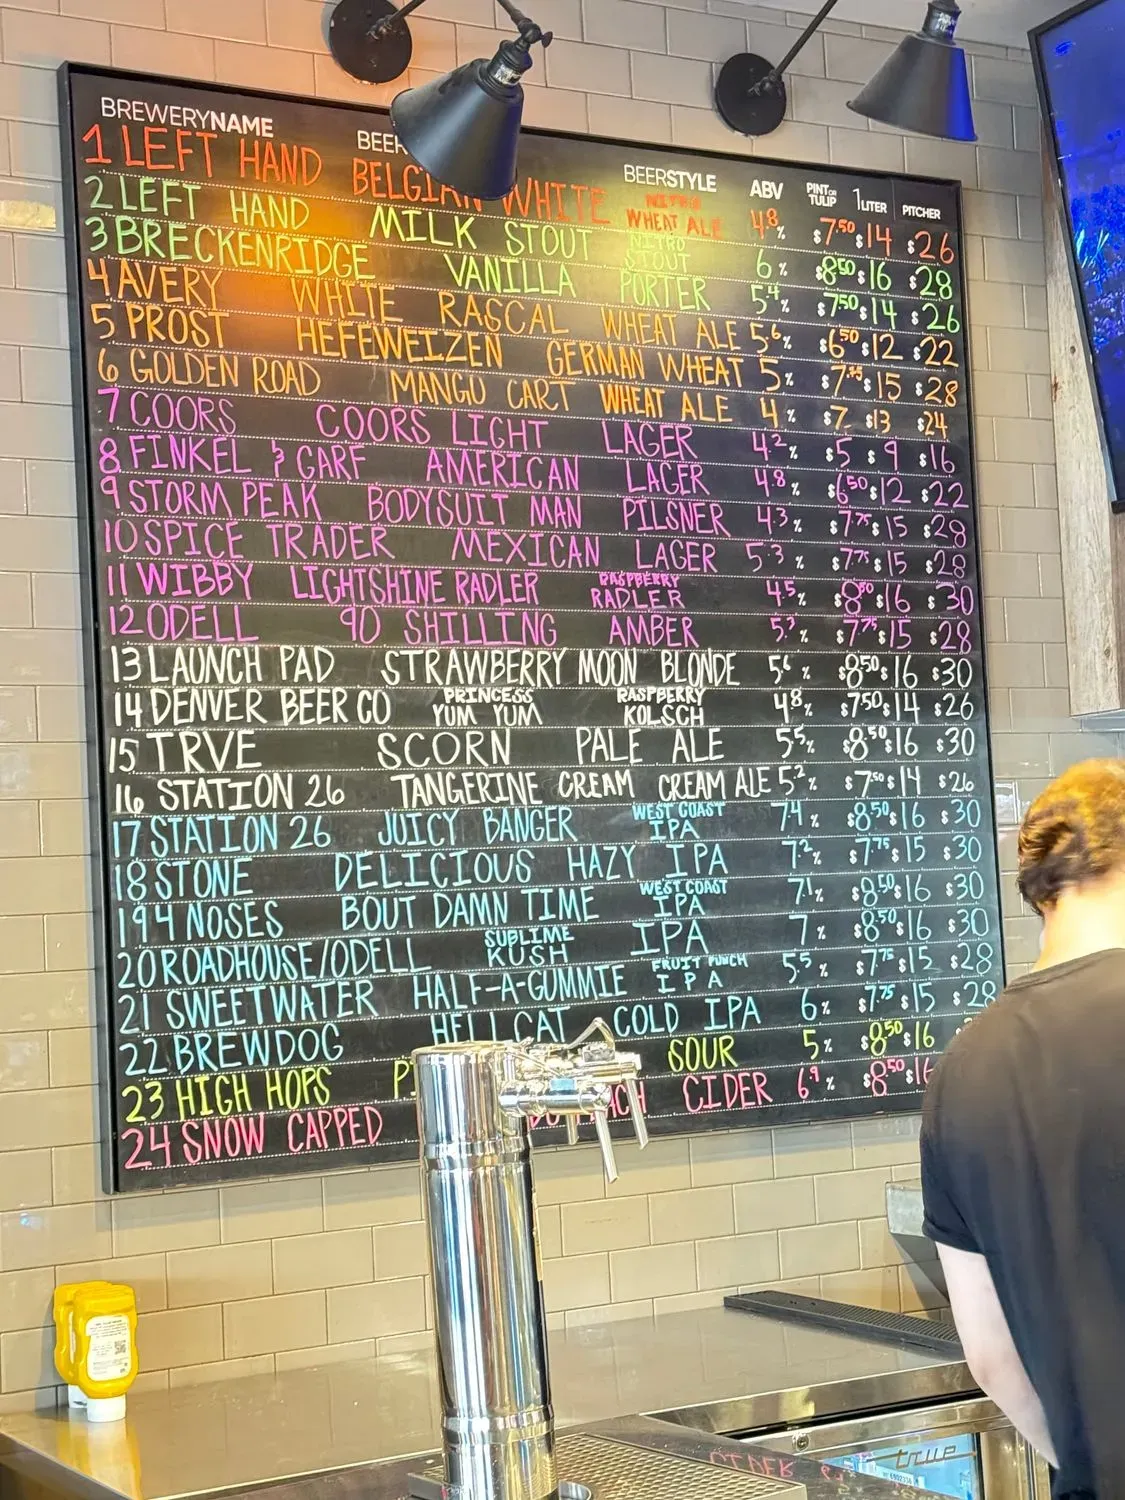 BREWERYNAME BEERSTYLE ABV PINT OR TULIP 1 LITER PITCHER
1 LEFT HAND BELGIAN WHITE NITRO WHEAT ALE 4.8% $7.50 $14 $26
2 LEFT HAND MILK STOUT NITRO STOUT 6% $8.50 $16 $28
3 BRECKENRIDGE VANILLA PORTER 5.4% $7.50 $14 $26
4 AVERY WHITE RASCAL WHEAT ALE 5.6% $6.50 $12 $22
5 PROST HEFEWEIZEN GERMAN WHEAT 5% $7.75 $15 $28
6 GOLDEN ROAD MANGO CART WHEAT ALE 4% $7 $13 $24
7 COORS COORS LIGHT LAGER 4.2% $5 $9 $16
8 FINKEL & GARF AMERICAN LAGER 4.8% $6.50 $12 $22
9 STORM PEAK BODYSUIT MAN PILSNER 4.3% $7.75 $15 $28
10 SPICE TRADER MEXICAN LAGER 5.3% $7.75 $15 $28
11 WIBBY LIGHTSHINE RADLER RASPBERRY RADLER 4.5% $8.50 $16 $30
12 ODELL 90 SHILLING AMBER 5.3% $7.75 $15 $28
13 LAUNCH PAD STRAWBERRY MOON BLONDE 5.6% $8.50 $16 $30
14 DENVER BEER CO PRINCESS YUM YUM RASPBERRY KOLSCH 4.8% $7.50 $14 $26
15 TRVE SCORN PALE ALE 5.5% $8.50 $16 $30
16 STATION 26 TANGERINE CREAM CREAM ALE 5.2% $7.50 $14 $26
17 STATION 26 JUICY BANGER WEST COAST IPA 7.4% $8.50 $16 $30
18 STONE DELICIOUS HAZY IPA 7.2% $7.75 $15 $30
19 4 NOSES BOUT DAMN TIME WEST COAST IPA 7.1% $8.50 $16 $30
20 ROADHOUSE/ODELL SUBLIME KUSH IPA 7% $8.50 $16 $30
21 SWEETWATER HALF-A-GUMMIE FRUIT PUNCH IPA 5.5% $7.75 $15 $28
22 BREWDOG HELLCAT COLD IPA 6% $7.75 $15 $28
23 HIGH HOPS SOUR 5% $8.50 $16
24 SNOW CAPPED CIDER 6.9% $8.50 $16
true